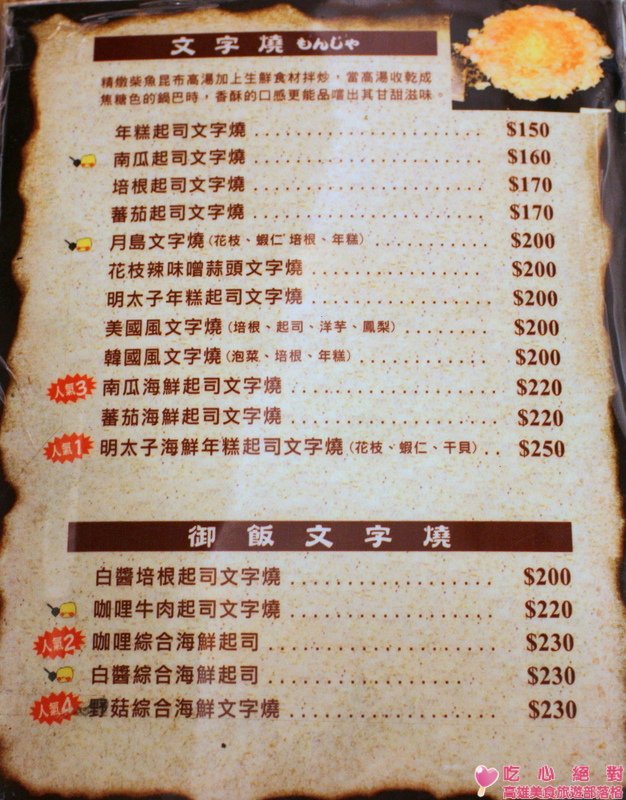 文字燒 もんじゃ
精燉柴魚昆布高湯加上生鮮食材拌炒，當高湯收乾成
焦糖色的鍋巴時，香酥的口感更能品嚐出其甘甜滋味。
年糕起司文字燒 $150
南瓜起司文字燒 $160
培根起司文字燒 $170
蕃茄起司文字燒 $170
月島文字燒(花枝、蝦仁、培根、年糕) $200
花枝辣味噌蒜頭文字燒 $200
明太子年糕起司文字燒 $200
美國風文字燒(培根、起司、洋芋、鳳梨) $200
韓國風文字燒(泡菜、培根、年糕) $200
人氣3 南瓜海鮮起司文字燒 $220
蕃茄海鮮起司文字燒 $220
人氣1 明太子海鮮年糕起司文字燒(花枝、蝦仁、干貝) $250
御飯文字燒
白醬培根起司文字燒 $200
咖哩牛肉起司文字燒 $220
人氣2 咖哩綜合海鮮起司 $230
白醬綜合海鮮起司 $230
人氣4 野菇綜合海鮮文字燒 $230
吃心絕對
高雄美食旅遊部落格